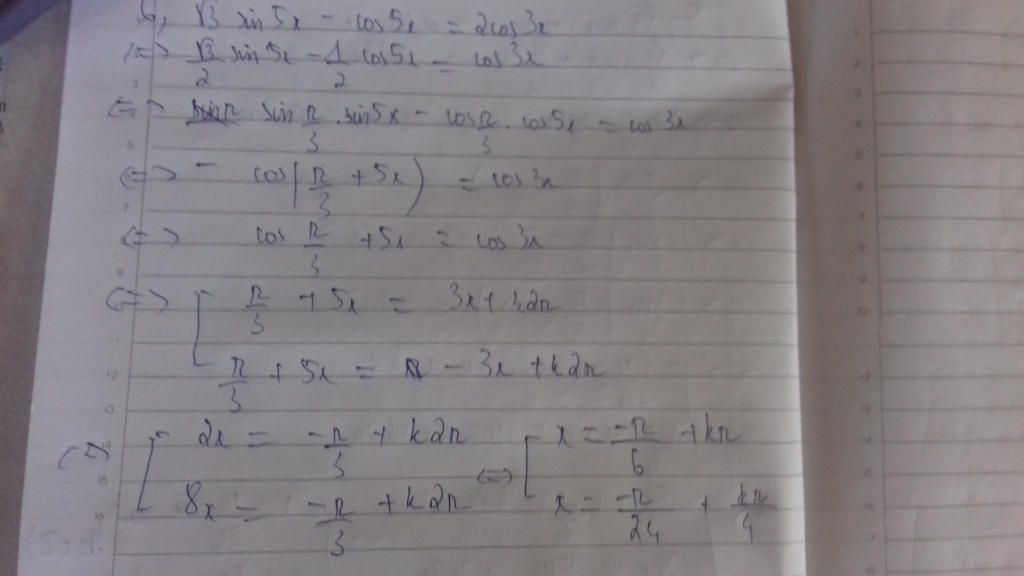 b, √3 sin5x - cos5x = 2cos3x
<=> √3/2 sin5x - 1/2 cos5x = cos3x
<=> sin π/3 . sin5x - cos π/3 . cos5x = cos3x
<=> - cos(π/3 + 5x) = cos3x
<=> cos π/3 + 5x = cos3x
<=> [ π/3 + 5x = 3x + k2π
π/3 + 5x = - 3x + k2π
<=> [ 2x = -π/3 + k2π <=> [ x = -π/6 + kπ
8x = -π/3 + k2π x = -π/24 + kπ/4